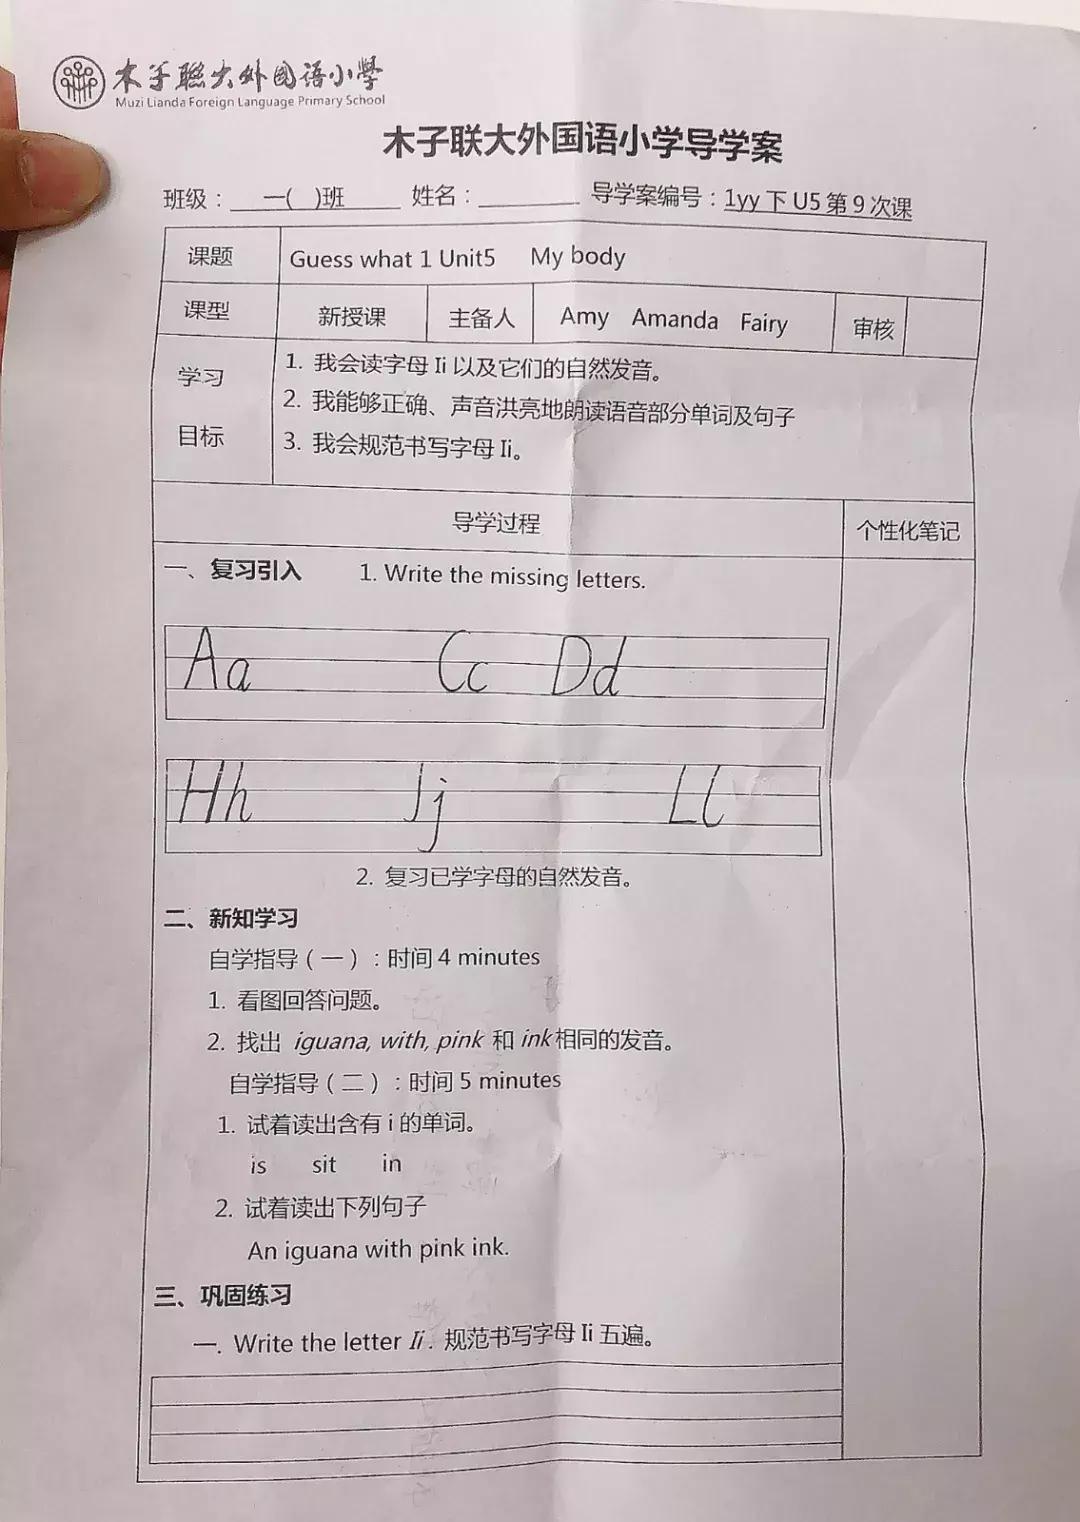 木子聯大外国语小學
Muzi Lianda Foreign Language Primary School
木子联大外国语小学导学案
班级：一( )班 姓名： 导学案编号：1yy下U5第9次课
课题 Guess what 1 Unit5 My body
课型 新授课 主备人 Amy Amanda Fairy 审核
学习目标
1. 我会读字母 Ii 以及它们的自然发音。
2. 我能够正确、声音洪亮地朗读语音部分单词及句子
3. 我会规范书写字母 Ii。
导学过程 个性化笔记
一、复习引入 1. Write the missing letters.
Aa Cc Dd
Hh Jj Ll
2. 复习已学字母的自然发音。
二、新知学习
自学指导（一）：时间 4 minutes
1. 看图回答问题。
2. 找出 iguana, with, pink 和 ink 相同的发音。
自学指导（二）：时间 5 minutes
1. 试着读出含有 i 的单词。
is sit in
2. 试着读出下列句子
An iguana with pink ink.
三、巩固练习
一. Write the letter Ii . 规范书写字母 Ii 五遍。